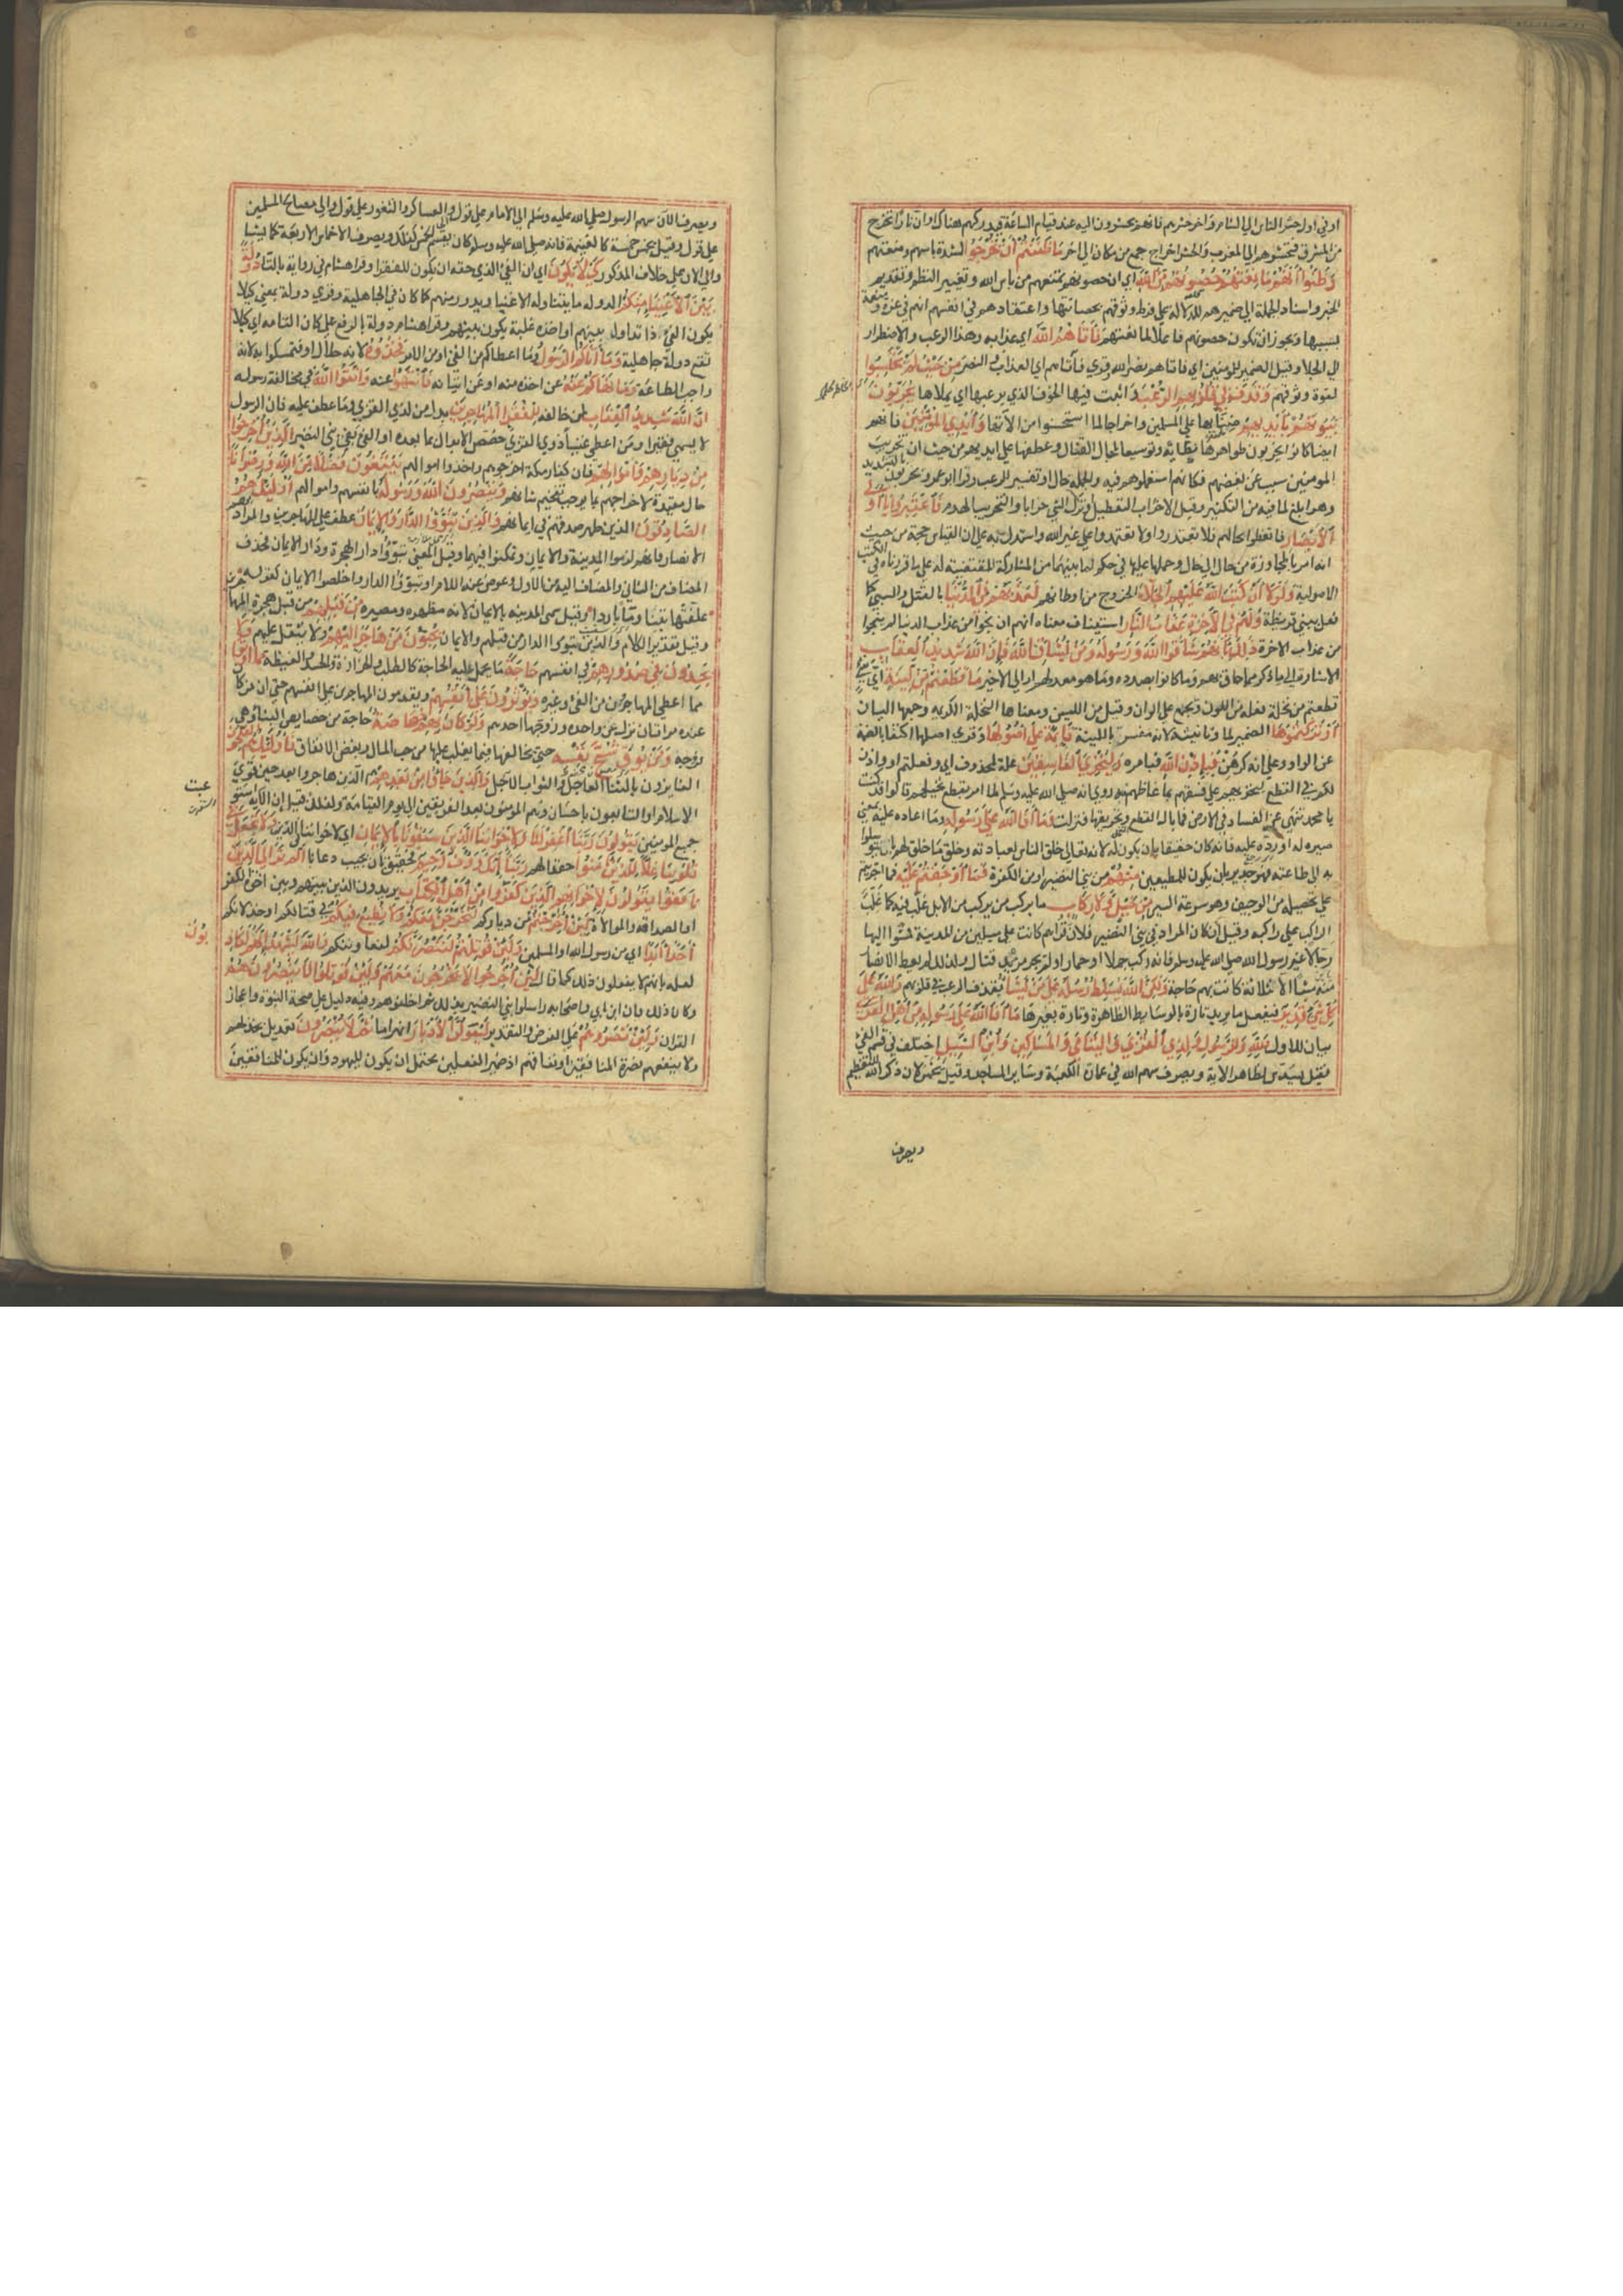 اوفي اول حشر الناس الي الشام واخر حشرهم فانهم يحشرون اليه عند قيام الساعة فيدركهم هناك او ان نارا تخرج
من المشرق فتحشرهم الي المغرب والحشر اخراج جمع من مكان الي اخر مَا ظَنَنْتُمْ أَنْ يَخْرُجُوا لشدة باسهم ومنعتهم
وَظَنُّوا أَنَّهُمْ مَانِعَتُهُمْ حُصُونُهُمْ مِنَ اللَّهِ اي ان حصونهم تمنعهم من باس الله وتغيير النظم وتقديم
الخبر واسناد الجملة الي ضميرهم للدلالة علي فرط وثوقهم بحصانتها واعتقادهم في انفسهم انهم في عزة ومنعة
بسببها ويجوز ان تكون حصونهم فاعلا لمانعتهم فَأَتَاهُمُ اللَّهُ اي عذابه وهذا الرعب والاضطرار
الي الجلا وقيل الضمير للمومنين اي فاتاهم نصر الله وقري فآتاهم اي العذاب او النصر مِنْ حَيْثُ لَمْ يَحْتَسِبُوا
لقوة وثوقهم وَقَذَفَ فِي قُلُوبِهِمُ الرُّعْبَ واثبت فيها الخوف الذي يرعبها اي يملاها يُخْرِبُونَ
بُيُوتَهُمْ بِأَيْدِيهِمْ ضنا بها علي المسلمين واخراجا لما استحسنوا من الآتها وَأَيْدِي الْمُؤْمِنِينَ فانهم
ايضا كانوا يخربون ظواهرها نكاية وتوسيعا لمجال القتال وعطفها علي ايديهم من حيث ان تخريب
المومنين سبب عن نقضهم فكانهم استعملوهم فيه والجملة حال او تفسير للرعب وقرا ابو عمرو يخربون بالتشديد
وهو ابلغ لما فيه من التكثير وقيل الاخراب التعطيل او ترك الشي خرابا والتخريب الهدم فَاعْتَبِرُوا يَا أُولِي
الْأَبْصَارِ فاتعظوا بحالهم فلا تغدروا ولا تعتمدوا علي غير الله واستدل به علي ان القياس حجة من حيث
انه امر بالمجاوزة من حال الي حال وحملها عليها في حكم لما بينهما من المشاركة المقتضية له علي ما قررناه في الكتب
الاصولية وَلَوْلَا أَنْ كَتَبَ اللَّهُ عَلَيْهِمُ الْجَلَاءَ الخروج من اوطانهم لَعَذَّبَهُمْ فِي الدُّنْيَا بالقتل والسبي كما
فعل ببني قريظة وَلَهُمْ فِي الْآخِرَةِ عَذَابُ النَّارِ استيناف معناه انهم ان نجوا من عذاب الدنيا لم ينجوا
من عذاب الاخرة ذَلِكَ بِأَنَّهُمْ شَاقُّوا اللَّهَ وَرَسُولَهُ وَمَنْ يُشَاقِّ اللَّهَ فَإِنَّ اللَّهَ شَدِيدُ الْعِقَابِ
الاشارة الي ما ذكر مما حاق بهم وما كانوا بصدده وما هو معد لهم او الي الاخير مَا قَطَعْتُمْ مِنْ لِينَةٍ اي شي
قطعتم من نخلة فعلة من اللون وتجمع علي الوان وقيل من اللين ومعناها النخلة الكريمة وجمعها اليان
أَوْ تَرَكْتُمُوهَا الضمير لما وتانيثه لانه مفسر باللينة قَائِمَةً عَلَى أُصُولِهَا وقري اصلها اكتفا بالضمة
عن الواو وعلي انه كرهن فَبِإِذْنِ اللَّهِ فبامره وَلِيُخْزِيَ الْفَاسِقِينَ علة لمحذوف اي وفعلتم او واذن
لكم في القطع ليخزيهم علي فسقهم بما غاظهم به روي انه صلي الله عليه وسلم لما امر بقطع نخيلهم قالوا قد كنت
يا محمد تنهي عن الفساد في الارض فما بال القطع وتحريقها فنزلت وَمَا أَفَاءَ اللَّهُ عَلَى رَسُولِهِ وما اعاده عليه بمعني
صيره له او رده عليه فانه كان حقيقا بان يكون له لانه تعالي خلق الناس لعبادته وخلق ما خلق لهم ليتوسلوا
به الي طاعته فهو جدير بان يكون للمطيعين مِنْهُمْ من بني النضير او من الكفرة فَمَا أَوْجَفْتُمْ عَلَيْهِ فما اجريتم
علي تحصيله من الوجيف وهو سرعة السير مِنْ خَيْلٍ وَلَا رِكَابٍ ما يركب من الابل غلب فيه كما غلب
الراكب علي راكبه وقيل ان كان المراد في بني النضير فلان قراهم كانت علي ميلين من المدينة فمشوا اليها
رجالا غير رسول الله صلي الله عليه وسلم فانه ركب جملا او حمارا ولم يجر مزيد قتال ولذلك لم يعط الانصار
منه شيا الا ثلاثة كانت بهم حاجة وَلَكِنَّ اللَّهَ يُسَلِّطُ رُسُلَهُ عَلَى مَنْ يَشَاءُ بقذف الرعب في قلوبهم وَاللَّهُ عَلَى
كُلِّ شَيْءٍ قَدِيرٌ فيفعل ما يريد تارة بالوسايط الظاهرة وتارة بغيرها مَا أَفَاءَ اللَّهُ عَلَى رَسُولِهِ مِنْ أَهْلِ الْقُرَى
بيان للاول فَلِلَّهِ وَلِلرَّسُولِ وَلِذِي الْقُرْبَى وَالْيَتَامَى وَالْمَسَاكِينِ وَابْنِ السَّبِيلِ اختلف في قسم الفي
فقيل يسدس لظاهر الاية ويصرف سهم الله في عمارة الكعبة وساير المساجد وقيل يخمس لان ذكر الله للتعظيم
ويصرف
ويصرف الآن سهم الرسول صلي الله عليه وسلم الي الامام علي قول والي العساكر والثغور علي قول والي مصالح المسلمين
علي قول وقيل يخمس خمسه كالغنيمة فانه صلي الله عليه وسلم كان يقسم الخمس كذلك ويصرف الاخماس الاربعة كما يشا
والي الان علي خلاف المذكور كَيْ لَا يَكُونَ اي ان الفي الذي حقه ان يكون للفقرا وقرا هشام في رواية بالتا دُولَةً
بَيْنَ الْأَغْنِيَاءِ مِنْكُمْ الدولة ما يتداوله الاغنيا ويدور بينهم كما كان في الجاهلية وقري دولة بمعني كيلا
يكون الفي ذا تداول بينهم او اخذه غلبة يكون بينهم وقرا هشام دولة بالرفع علي كان التامة اي كيلا
تقع دولة جاهلية وَمَا آتَاكُمُ الرَّسُولُ وما اعطاكم من الفي او من الامر فَخُذُوهُ لانه حلال او فتمسكوا به لانه
واجب الطاعة وَمَا نَهَاكُمْ عَنْهُ عن اخذه منه او عن اتيانه فَانْتَهُوا عنه وَاتَّقُوا اللَّهَ في مخالفة رسوله
إِنَّ اللَّهَ شَدِيدُ الْعِقَابِ لمن خالفه لِلْفُقَرَاءِ الْمُهَاجِرِينَ بدل من لذي القربي وما عطف عليه فان الرسول
لا يسمي فقيرا ومن اعطي غنيا ذوي القربي خصص الابدال بما بعده او الفي بفي بني النضير الَّذِينَ أُخْرِجُوا
مِنْ دِيَارِهِمْ وَأَمْوَالِهِمْ فان كفار مكة اخرجوهم واخذوا اموالهم يَبْتَغُونَ فَضْلًا مِنَ اللَّهِ وَرِضْوَانًا
حال مقيدة لاخراجهم بما يوجب تفخيم شانهم وَيَنْصُرُونَ اللَّهَ وَرَسُولَهُ بانفسهم واموالهم أُولَئِكَ هُمُ
الصَّادِقُونَ الذين ظهر صدقهم في ايمانهم وَالَّذِينَ تَبَوَّءُوا الدَّارَ وَالْإِيمَانَ عطف علي المهاجرين والمراد بهم
الانصار فانهم لزموا المدينة والايمان وتمكنوا فيهما وقيل المعني تبوؤا دار الهجرة ودار الايمان فحذف
المضاف من الثاني والمضاف اليه من الاول وعوض عنه اللام او تبوؤا الدار واخلصوا الايمان كقوله
علفتها تبنا وما باردا وقيل سمي المدينة بالايمان لانه مظهره ومصيره مِنْ قَبْلِهِمْ من قبل هجرة المهاجرين
وقيل تقدير الكلام والذين تبوؤا الدار من قبلهم والايمان يُحِبُّونَ مَنْ هَاجَرَ إِلَيْهِمْ ولا يثقل عليهم وَلَا
يَجِدُونَ فِي صُدُورِهِمْ في انفسهم حَاجَةً ما يحمل عليه الحاجة كالطلب والحزازة والحسد والغيظة مِمَّا أُوتُوا
مما اعطي المهاجرون من الفي وغيره وَيُؤْثِرُونَ عَلَى أَنْفُسِهِمْ ويقدمون المهاجرين علي انفسهم حتي ان من كان
عنده مراتان نزل عن واحدة وزوجها احدهم وَلَوْ كَانَ بِهِمْ خَصَاصَةٌ حاجة من خصايص البنا وهي
فرجه وَمَنْ يُوقَ شُحَّ نَفْسِهِ حتي يخالفها فيما يغلب عليها من حب المال وبغض الانفاق فَأُولَئِكَ هُمُ الْمُفْلِحُونَ
الفايزون بالثنا العاجل والثواب الآجل وَالَّذِينَ جَاءُوا مِنْ بَعْدِهِمْ الذين هاجروا بعد حين قوي
الاسلام او التابعون باحسان وهم المومنون بعد الفريقين الي يوم القيامة ولذلك قيل ان الآية قد استوعبت
جميع المومنين يَقُولُونَ رَبَّنَا اغْفِرْ لَنَا وَلِإِخْوَانِنَا الَّذِينَ سَبَقُونَا بِالْإِيمَانِ اي لاخواننا في الدين وَلَا تَجْعَلْ فِي
قُلُوبِنَا غِلًّا لِلَّذِينَ آمَنُوا حقدا لهم رَبَّنَا إِنَّكَ رَءُوفٌ رَحِيمٌ فحقيق بان تجيب دعانا أَلَمْ تَرَ إِلَى الَّذِينَ
نَافَقُوا يَقُولُونَ لِإِخْوَانِهِمُ الَّذِينَ كَفَرُوا مِنْ أَهْلِ الْكِتَابِ يريدون الذين بينهم وبينهم اخوة الكفر
او الصداقة والموالاة لَئِنْ أُخْرِجْتُمْ من دياركم لَنَخْرُجَنَّ مَعَكُمْ وَلَا نُطِيعُ فِيكُمْ في قتالكم او خذلانكم
أَحَدًا أَبَدًا اي من رسول الله او المسلمين وَإِنْ قُوتِلْتُمْ لَنَنْصُرَنَّكُمْ لنعاوننكم وَاللَّهُ يَشْهَدُ إِنَّهُمْ لَكَاذِبُونَ
لعلمه بانهم لا يفعلون ذلك كما قال لَئِنْ أُخْرِجُوا لَا يَخْرُجُونَ مَعَهُمْ وَلَئِنْ قُوتِلُوا لَا يَنْصُرُونَهُمْ
وكان ذلك فان ابن ابي واصحابه راسلوا بني النضير بذلك ثم اخلفوهم وفيه دليل علي صحة النبوة واعجاز
القران وَلَئِنْ نَصَرُوهُمْ علي الفرض والتقدير لَيُوَلُّنَّ الْأَدْبَارَ انهزاما ثُمَّ لَا يُنْصَرُونَ بعد بل نخذلهم
ولا ينفعهم نصرة المنافقين او نفاقهم اذ ضمير الفعلين يحتمل ان يكون لليهود وان يكون للمنافقين